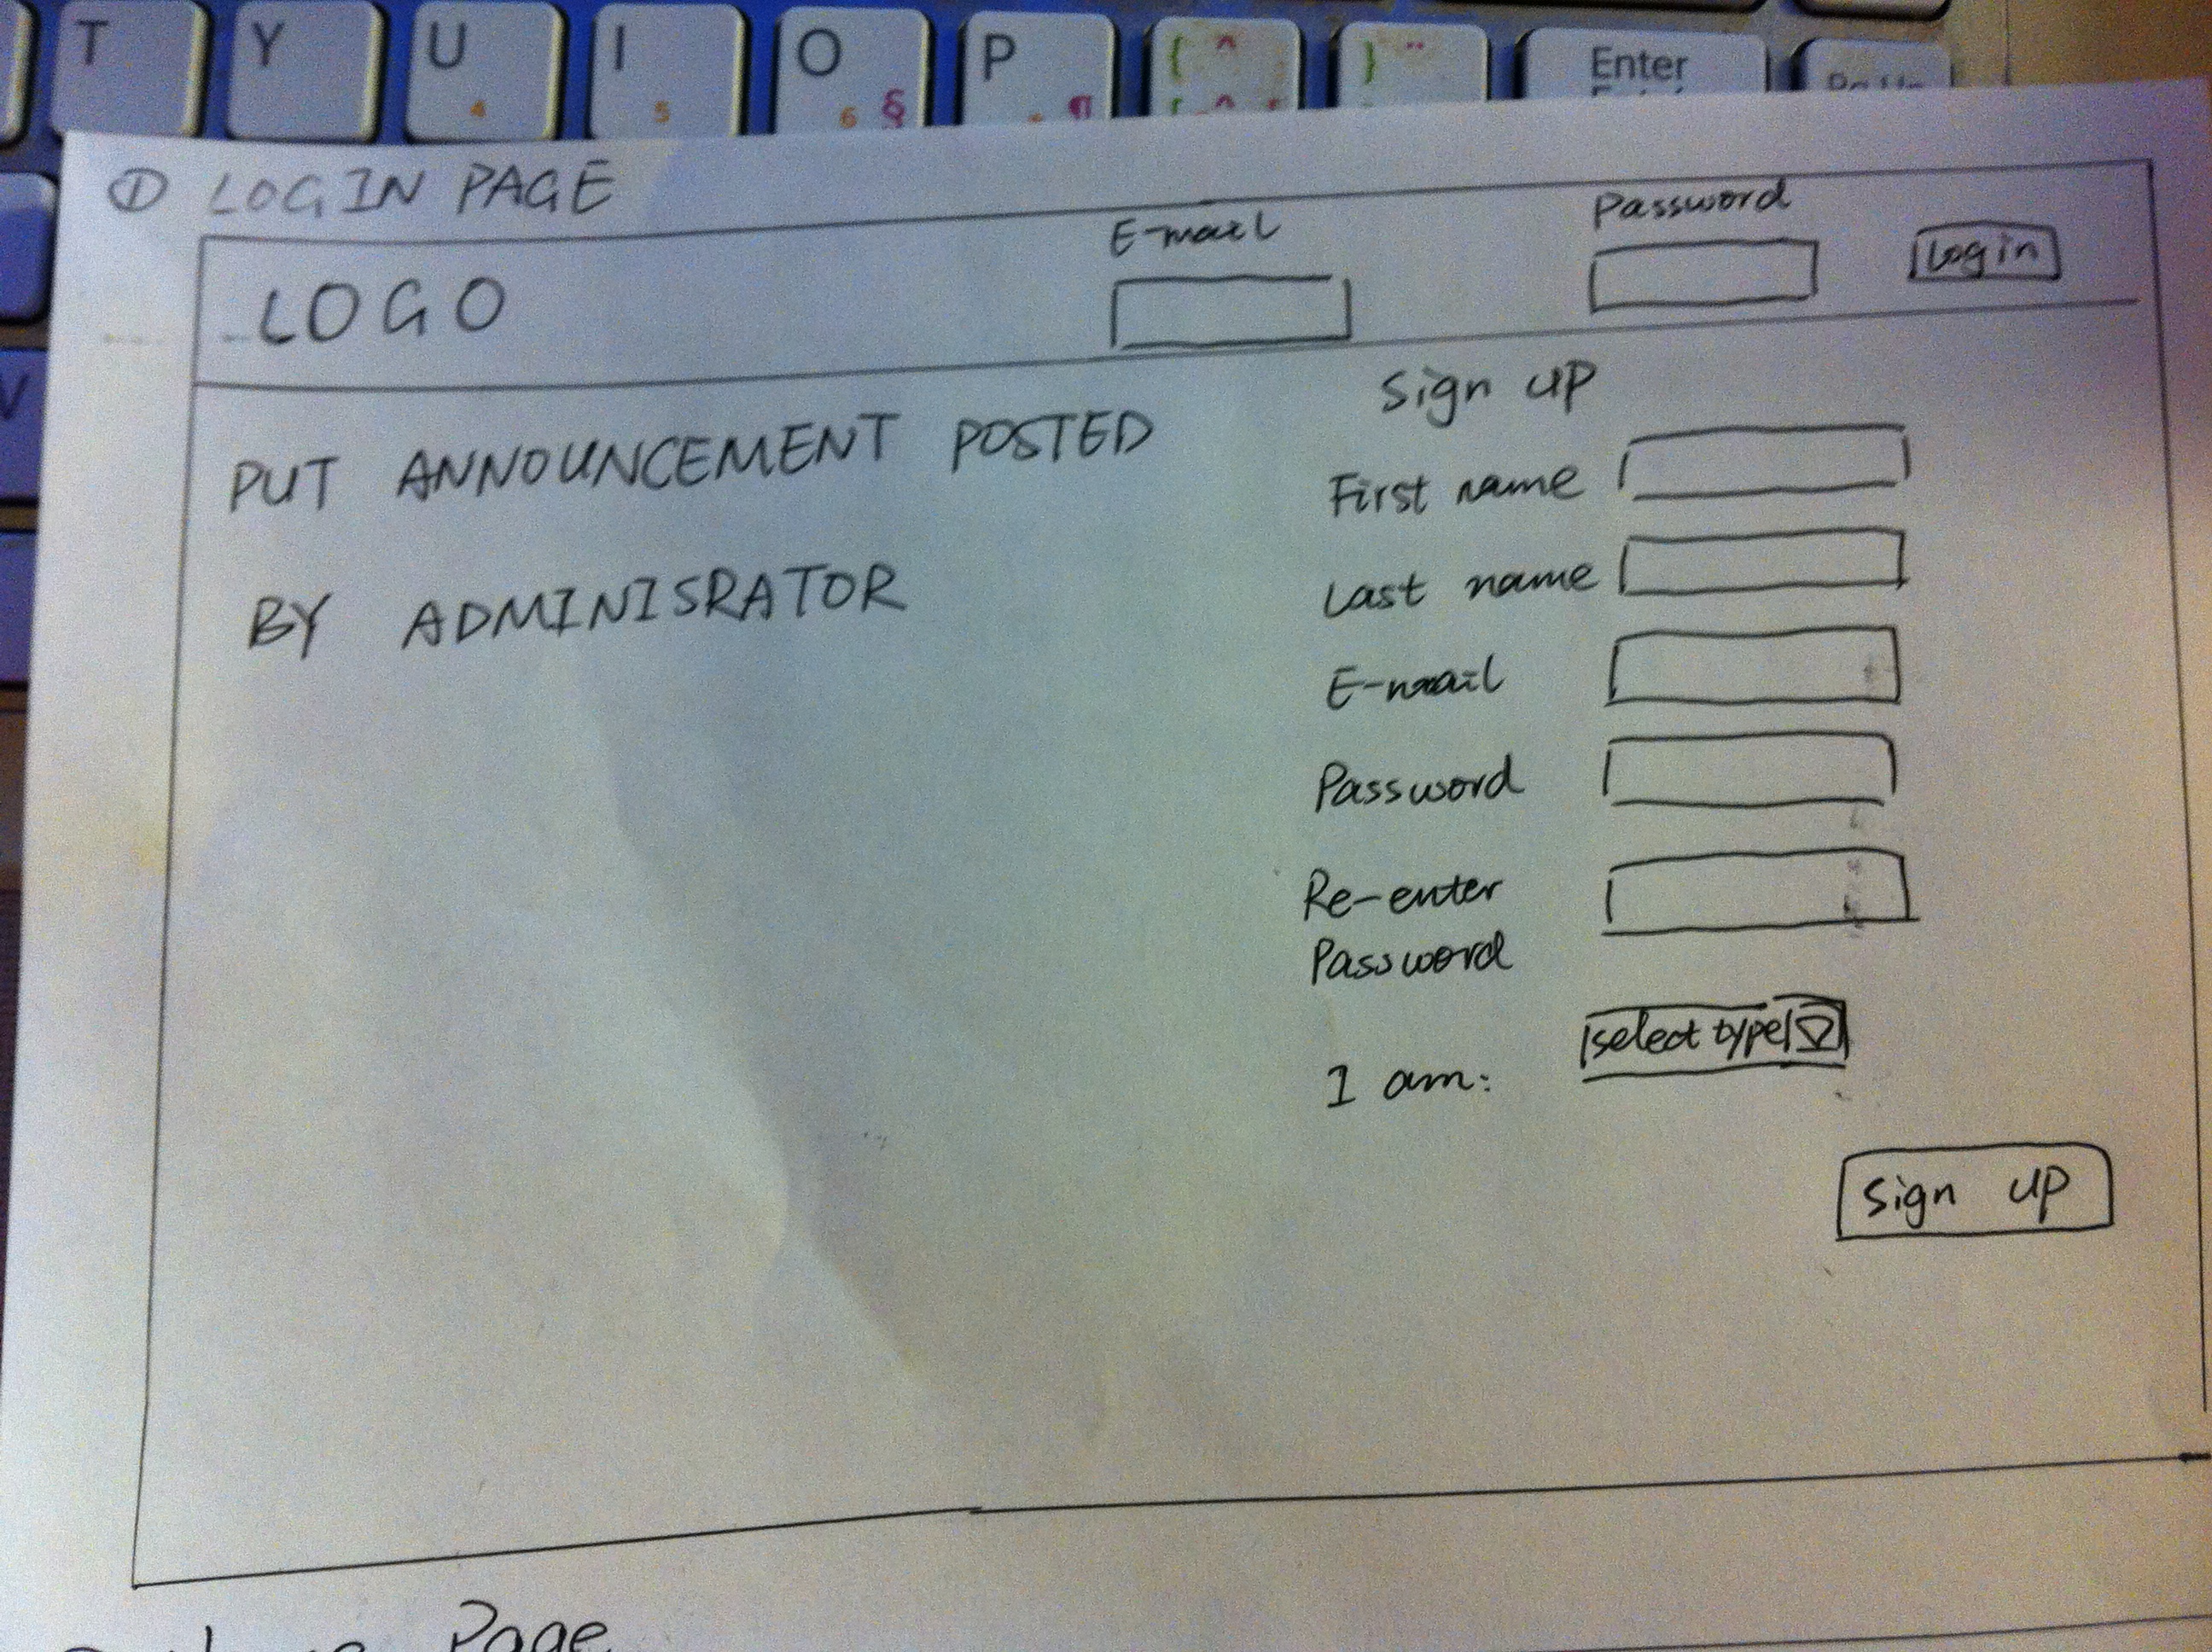 T Y U I O P { ^ } ¨ Enter
4 5 6 § ¶
① LOGIN PAGE
LOGO
E-mail
Password
Login
PUT ANNOUNCEMENT POSTED
BY ADMINISRATOR
Sign up
First name
Last name
E-mail
Password
Re-enter
Password
I am:
select type
Sign up
Page